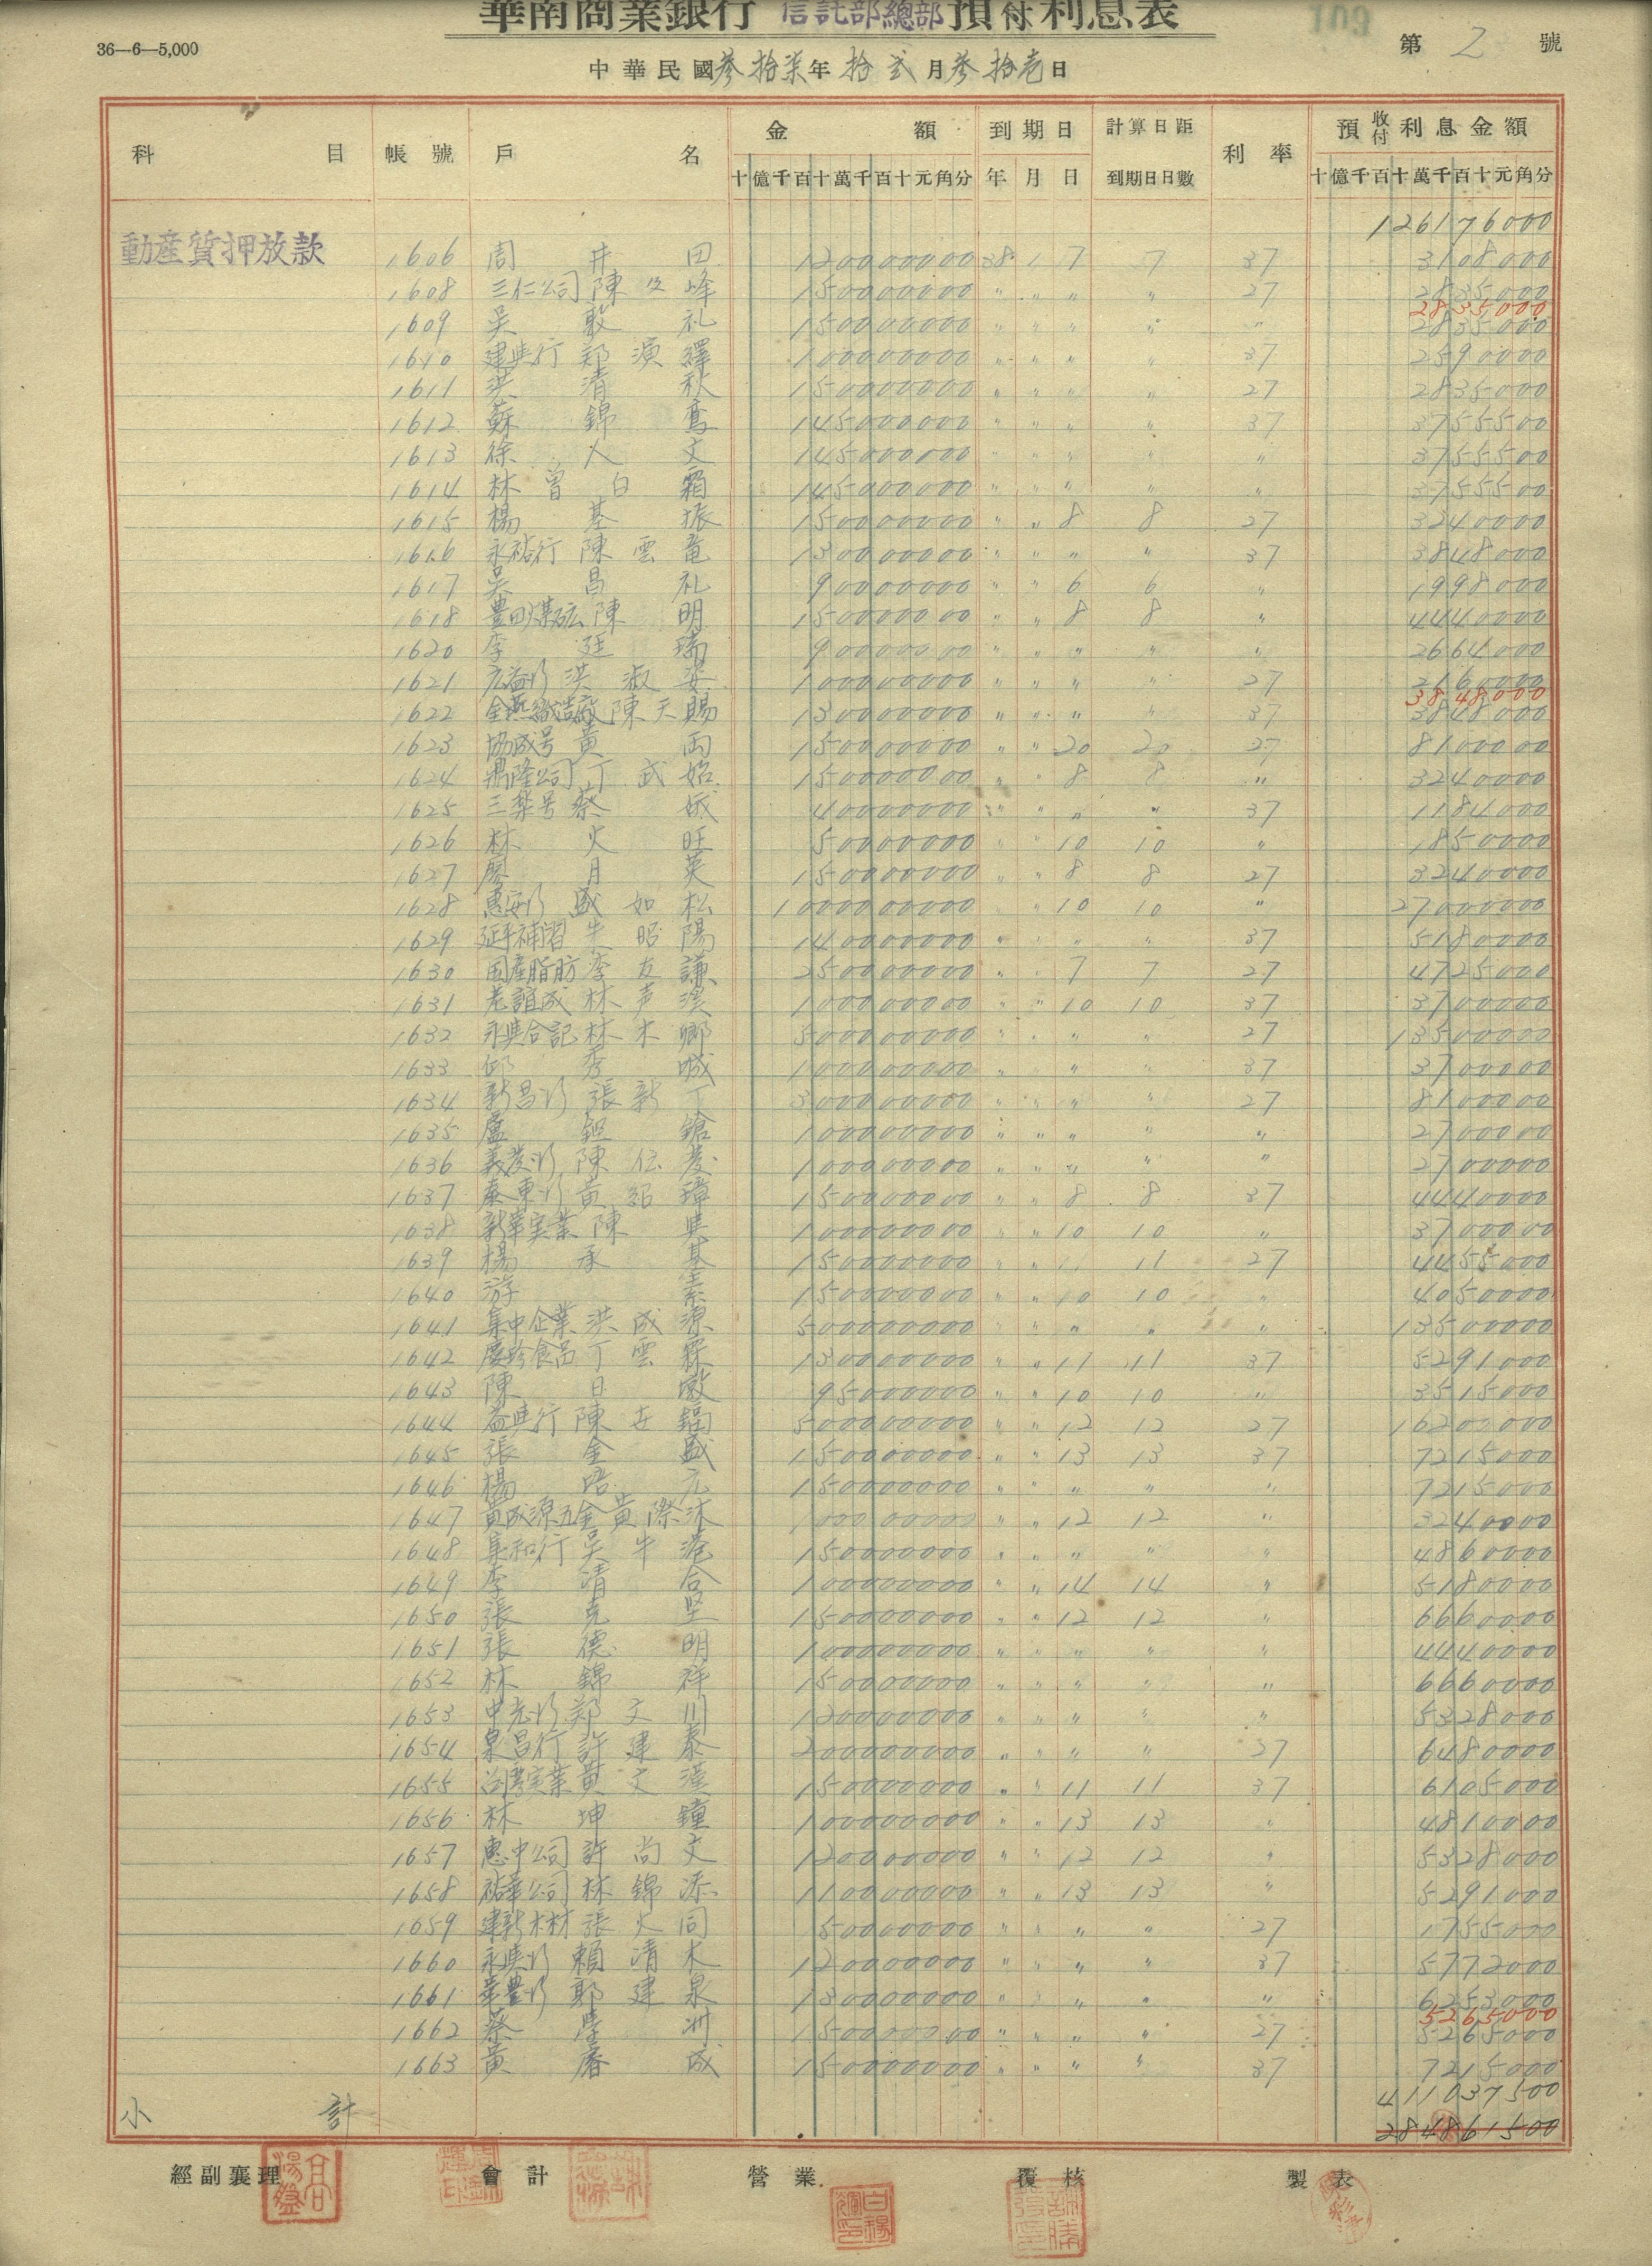 華南商業銀行 信託部總部 預付利息表
109
36—6—5,000
第 2 號
中華民國叁拾柒年拾弍月叁拾壱日
科目 帳號 戶名 金額 到期日 計算日距到期日日數 利率 預收付利息金額
十億千百十萬千百十元角分 年 月 日 十億千百十萬千百十元角分
126176000
動産質押放款 1606 周井田 120000000 38 1 7 7 37 3108000
1608 三仁公司 陳 峰 150000000 〃 〃 〃 〃 27 2835000
2835000
1609 吳敦礼 150000000 〃 〃 〃 〃 〃 2835000
1610 建興行 鄭演繹 100000000 〃 〃 〃 〃 37 2590000
1611 洪清秋 150000000 〃 〃 〃 〃 27 2835000
1612 蘇錦 145000000 〃 〃 〃 〃 37 3755500
1613 徐人文 145000000 〃 〃 〃 〃 〃 3755500
1614 林曾白霜 145000000 〃 〃 〃 〃 〃 3755500
1615 楊基振 150000000 〃 〃 8 8 27 3240000
1616 永裕行 陳雲竜 130000000 〃 〃 〃 〃 37 3848000
1617 吳昌礼 90000000 〃 〃 6 6 〃 1998000
1618 豊田煤砿 陳明 150000000 〃 〃 8 8 〃 4440000
1620 李廷瑞 90000000 〃 〃 〃 〃 〃 2664000
1621 広益行 洪淑姿 100000000 〃 〃 〃 〃 27 2160000
3848000
1622 陳天賜 130000000 〃 〃 〃 〃 37 3848000
1623 協成号 黃両 150000000 〃 〃 20 20 27 8100000
1624 鼎隆公司 丁武始 150000000 〃 〃 8 8 〃 3240000
1625 三葉号 蔡娥 40000000 〃 〃 〃 〃 37 1184000
1626 林火旺 50000000 〃 〃 10 10 〃 1850000
1627 廖月英 150000000 〃 〃 8 8 27 3240000
1628 惠安行 盛如松 1000000000 〃 〃 10 10 〃 27000000
1629 延平補習 朱昭陽 140000000 〃 〃 〃 〃 37 5180000
1630 国産脂肪 李友謙 250000000 〃 〃 7 7 27 4725000
1631 老誼成 林声 100000000 〃 〃 10 10 37 3700000
1632 永興合記 林木鄉 500000000 〃 〃 〃 〃 27 13500000
1633 邱秀城 100000000 〃 〃 〃 〃 37 3700000
1634 新昌行 張新丁 300000000 〃 〃 〃 〃 27 8100000
1635 盧鉭鎗 100000000 〃 〃 〃 〃 〃 2700000
1636 義發行 陳伝發 100000000 〃 〃 〃 〃 〃 2700000
1637 泰東行 黃紹璋 150000000 〃 〃 8 8 37 4440000
1638 新華実業 陳 100000000 〃 〃 10 10 〃 3700000
1639 楊承基 150000000 〃 〃 11 11 27 4455000
1640 游素 150000000 〃 〃 10 10 〃 4050000
1641 集中企業 洪成源 500000000 〃 〃 〃 〃 〃 13500000
1642 慶珍食品 丁雲霖 130000000 〃 〃 11 11 37 5291000
1643 陳日 95000000 〃 〃 10 10 〃 3515000
1644 益興行 陳世 500000000 〃 〃 12 12 27 16200000
1645 張金盛 150000000 〃 〃 13 13 37 7215000
1646 楊広 150000000 〃 〃 〃 〃 〃 7215000
1647 黃成源五金 黃際沐 100000000 〃 〃 12 12 〃 3240000
1648 集和行 吳牛港 150000000 〃 〃 〃 〃 〃 4860000
1649 李清合 100000000 〃 〃 14 14 〃 5180000
1650 張克坚 150000000 〃 〃 12 12 〃 6660000
1651 張德明 100000000 〃 〃 〃 〃 〃 4440000
1652 林錦祥 150000000 〃 〃 〃 〃 〃 6660000
1653 中光行 鄭文川 120000000 〃 〃 〃 〃 〃 5328000
1654 泉昌行 許建泰 200000000 〃 〃 〃 〃 27 6480000
1655 台湾実業 黃文 150000000 〃 〃 11 11 37 6105000
1656 林坤鐘 100000000 〃 〃 13 13 〃 4810000
1657 惠中公司 許尚文 120000000 〃 〃 12 12 〃 5328000
1658 裕華公司 林錦添 110000000 〃 〃 13 13 〃 5291000
1659 建新木材 張火同 50000000 〃 〃 〃 〃 27 1755000
1660 永興行 賴清木 120000000 〃 〃 〃 〃 37 5772000
1661 華豊行 郭建泉 130000000 〃 〃 〃 〃 〃 6253000
5265000
1662 蔡洲 150000000 〃 〃 〃 〃 27 5265000
1663 黃成 150000000 〃 〃 〃 〃 37 7215000
411037500
小計 284861500
經副襄理 會計 營業 覆核 製表